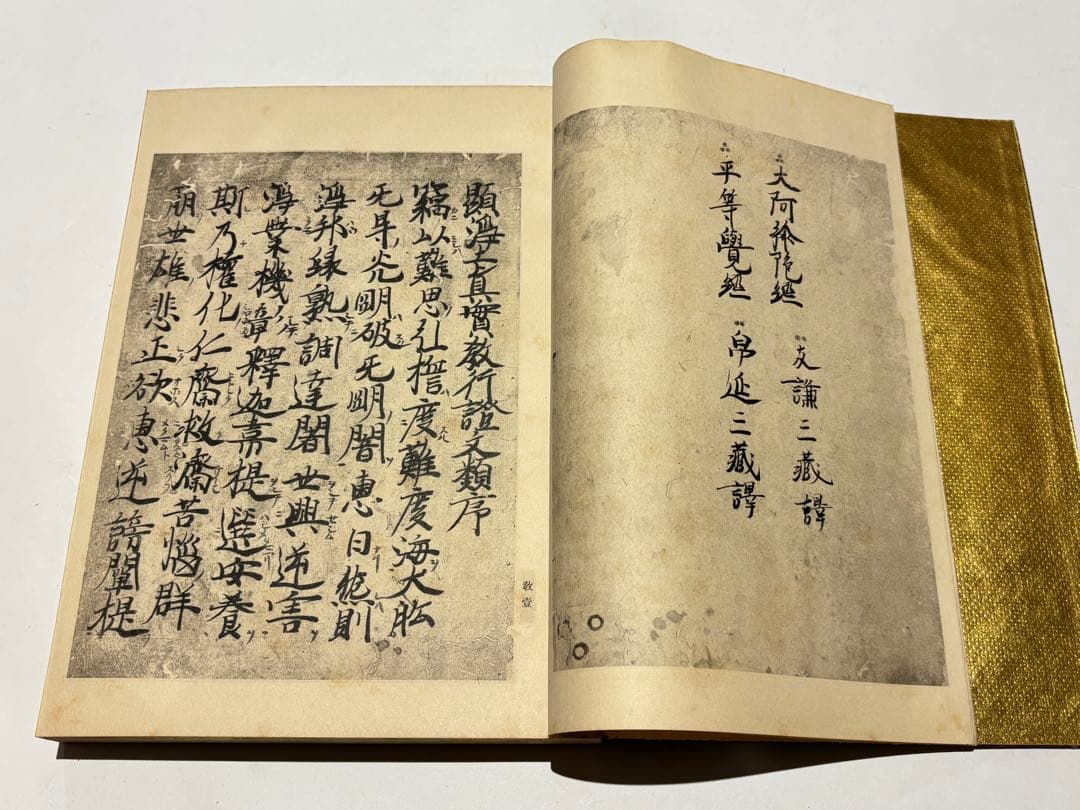 大阿弥陁経 支謙三藏譯
平等覺経 帛延三藏譯
顯浄土真實教行證文類序
竊以難思弘誓度難度海大舩
无㝵光明破无明闇恵日然則
浄邦縁熟調達闍世興逆害
浄業機彰釋迦韋提選安養
斯乃權化仁齊救濟苦惱群
萠世雄悲正欲恵逆謗闡提
教 壹